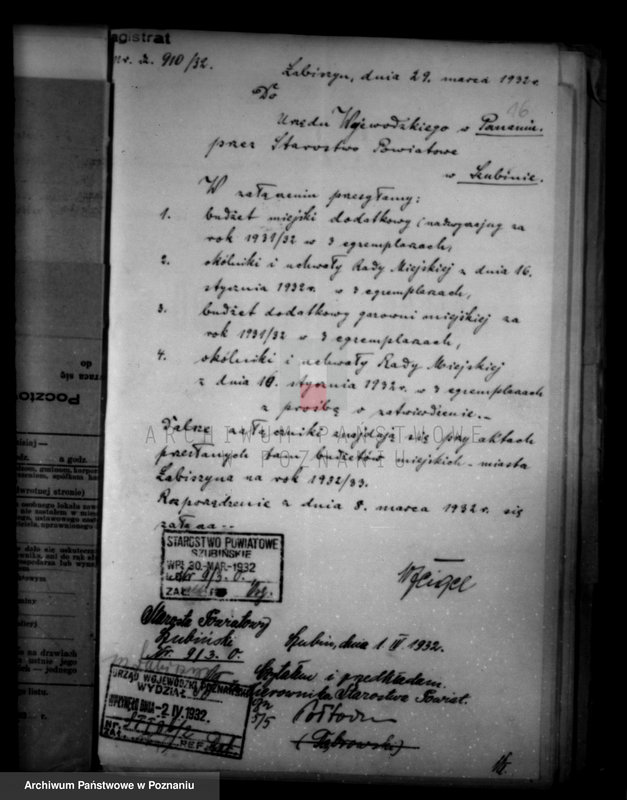 Magistrat
nr. 2. 910/32.
Łabiszyn, dnia 29. marca 1932 r.
16
Do
Urzędu Wojewódzkiego w Poznaniu.
przez Starostwo Powiatowe
w Szubinie.
W załączeniu przesyłamy:
1. budżet miejski dodatkowy (nadzwyczajny za
rok 1931/32 w 3 egzemplarzach,
2. okólniki i uchwały Rady Miejskiej z dnia 16.
stycznia 1932 r. w 3 egzemplarzach,
3. budżet dodatkowy gazowni miejskiej za
rok 1931/32 w 3 egzemplarzach,
4. okólniki i uchwały Rady Miejskiej
z dnia 16. stycznia 1932 r. w 3 egzemplarzach
z prośbą o zatwierdzenie.
Dalsze załączniki znajdują się przy aktach
przesłanych tam budżetów miejskich miasta
Łabiszyna na rok 1932/33.
Rozporządzenie z dnia 8. marca 1932 r. się
załącza.
ARCHIWUM PAŃSTWOWE
W POZNANIU
STAROSTWO POWIATOWE
SZUBIŃSKIE
WPŁ. 30. MAR. 1932
Nr 9/3.0.
ZAŁ.
Starosta Powiatowy
Szubiński
Nr. 9/3.0.
Szubin, dnia 1 IV 1932.
Czytałem i przedkładam.
Kierownik Starostwa Powiat.
(Dąbrowski)
URZĄD WOJEWÓDZKI POZNAŃSKI
WYDZIAŁ
WPŁYNĘŁO DNIA -2 IV. 1932.
NR.
ZAŁ. REF.
do
Poczto
dzisiaj —
godz. a godz.
(odwrotnej stronie)
Archiwum Państwowe w Poznaniu